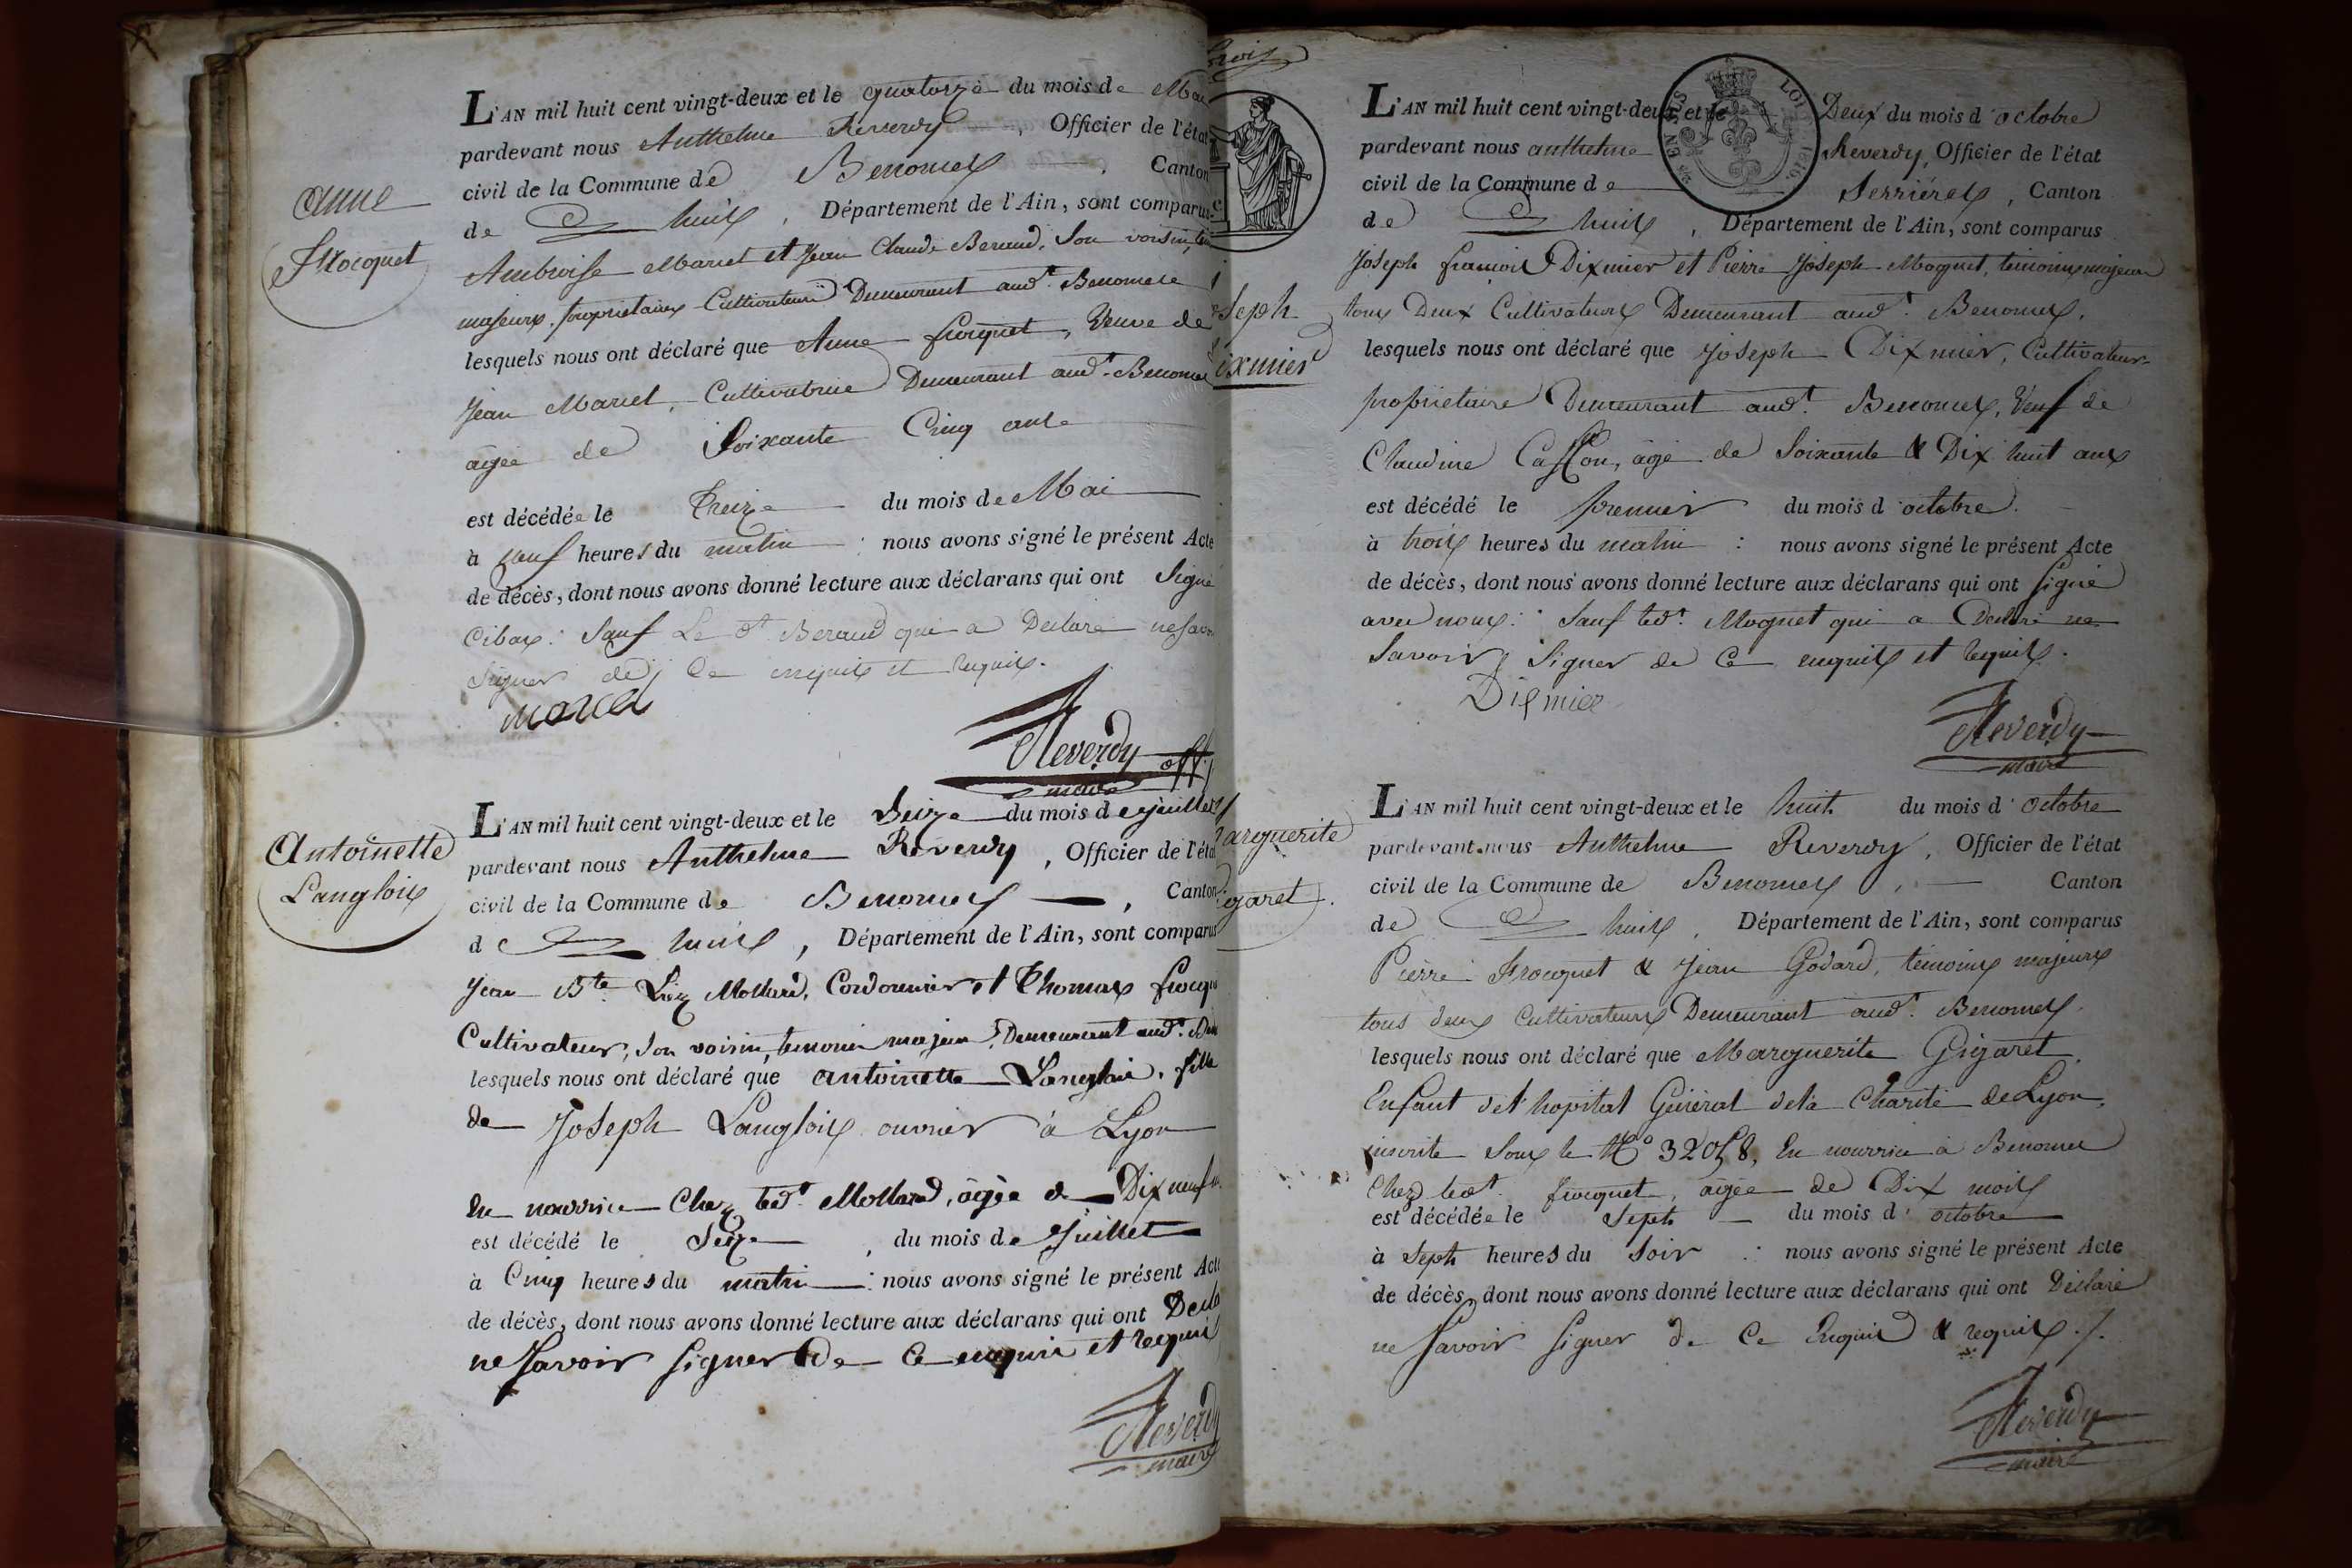 Anne
Frocquet
L'AN mil huit cent vingt-deux et le quatorze du mois de Mai
pardevant nous Anthelme Reverdy, Officier de l'état
civil de la Commune de Benonces, Canton
de Lhuis, Département de l'Ain, sont comparus
Ambroise Marcel et Jean Claude Beraud, son voisin,
majeurs, propriétaires Cultivateurs Demeurant aud.t Benonces
lesquels nous ont déclaré que Anne frocquet, Veuve de
Jean Marcel, Cultivatrice Demeurant aud.t Benonces
agée de Soixante Cinq ans
est décédée le Treize du mois de Mai
à neuf heures du matin : nous avons signé le présent Acte
de décès, dont nous avons donné lecture aux déclarans qui ont Signé
Cibas. Sauf Le d.t Beraud qui a Declaré ne savoir
Signer de Ce enquis et requis.
Marcel
Reverdy off
maire
Antoinette
Langlois
L'AN mil huit cent vingt-deux et le Seize du mois de juillet
pardevant nous Anthelme Reverdy, Officier de l'état
civil de la Commune de Benonces, Canton
de Lhuis, Département de l'Ain, sont comparus
Jean B.te Mollard, Cordonnier et Thomas frocquet
Cultivateur, son voisin, temoins majeurs, Demeurant aud.t
lesquels nous ont déclaré que antoinette Langlois, fille
de Joseph Langlois ouvrier à Lyon
En nourrice Chez led.t Mollard, agée de Dix neuf
est décédé le Seize, du mois de Juillet
à Cinq heures du matin : nous avons signé le présent Acte
de décès, dont nous avons donné lecture aux déclarans qui ont Decla
ne Savoir Signer de Ce enquis et requis
Reverdy
maire
seph
ixmier
L'AN mil huit cent vingt-deux et le Deux du mois d'octobre
pardevant nous anthelme Reverdy, Officier de l'état
civil de la Commune de Serrières, Canton
de Lhuis, Département de l'Ain, sont comparus
Joseph françois Dixmier et Pierre Joseph Moquet, temoins majeurs
tous Deux Cultivateurs Demeurant aud.t Benonces.
lesquels nous ont déclaré que Joseph Dixmier, Cultivateur
propriétaire Demeurant aud.t Benonces, Veuf de
Claudine Caston, agé de Soixante & Dix huit ans
est décédé le premier du mois d'octobre.
à trois heures du matin : nous avons signé le présent Acte
de décès, dont nous avons donné lecture aux déclarans qui ont Signé
avec nous. Sauf led.t Moquet qui a Declaré ne
Savoir Signer de Ce enquis et requis.
Dixmier
Reverdy
maire
arguerite
garet
L'AN mil huit cent vingt-deux et le huit du mois d'octobre
pardevant nous Anthelme Reverdy, Officier de l'état
civil de la Commune de Benonces, Canton
de Lhuis, Département de l'Ain, sont comparus
Pierre Frocquet & Jean Godard, temoins majeurs
tous deux Cultivateurs Demeurant aud.t Benonces.
lesquels nous ont déclaré que Marguerite Grigaret,
Enfant de l'hopital Général de la Charité de Lyon,
inscrite Sous le N.o 32058, En nourrice à Benonces
Chez led.t frocquet, agée de Dix mois
est décédée le Sept du mois d'octobre
à Sept heures du Soir : nous avons signé le présent Acte
de décès, dont nous avons donné lecture aux déclarans qui ont Déclaré
ne Savoir Signer de Ce Enquis & requis./.
Reverdy
maire